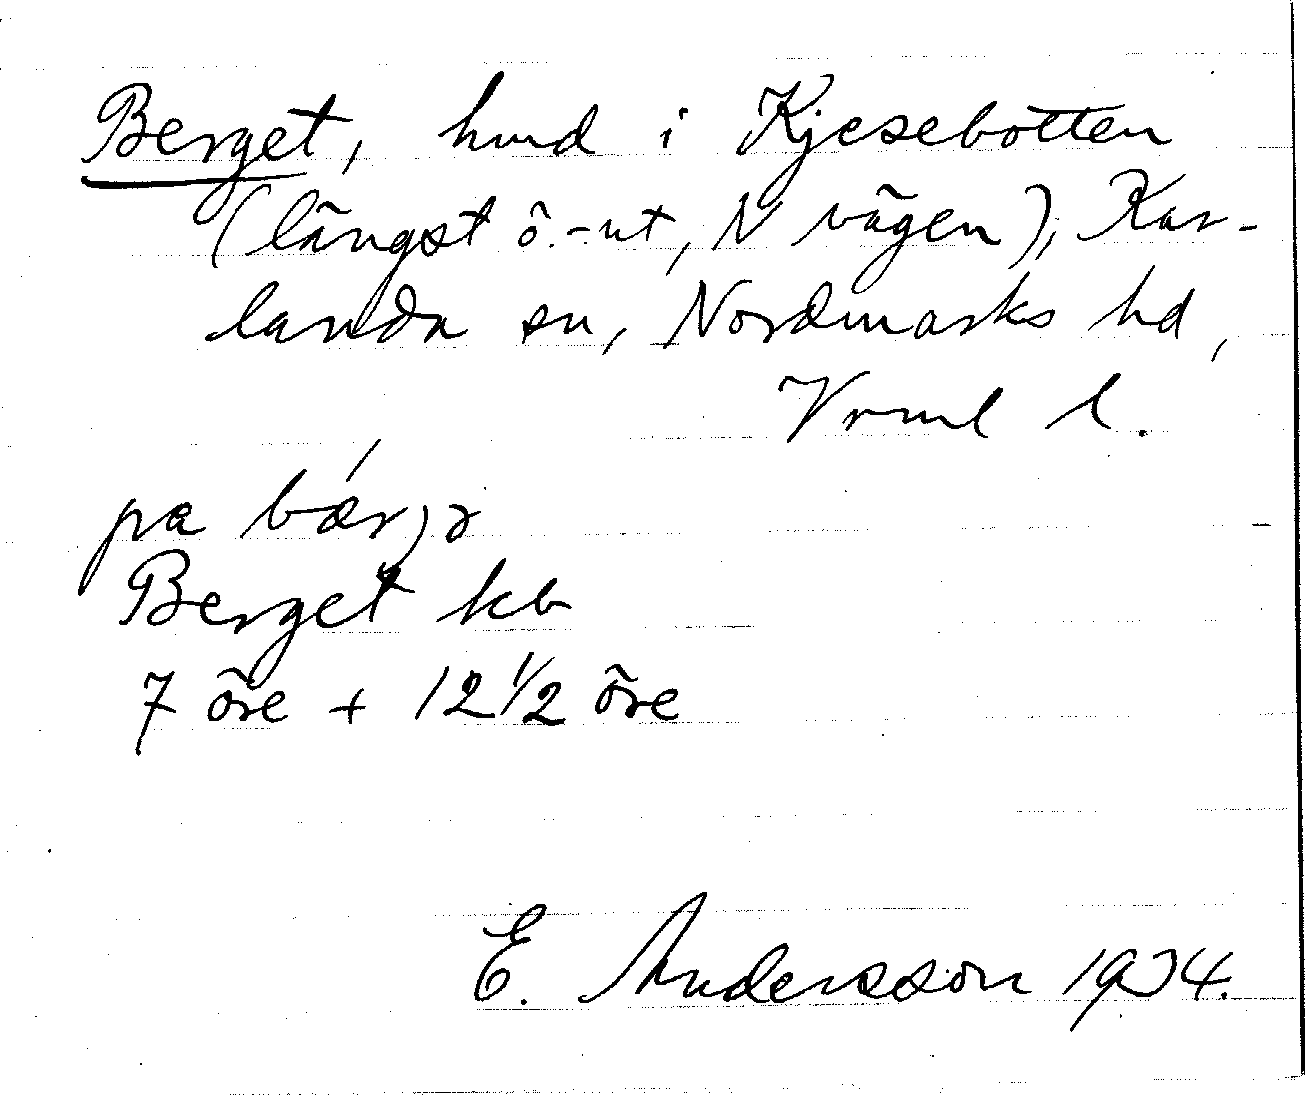 Berget, hmd i Kjesebotten
(längst ö.-ut, N vägen), Kar-
landa sn, Nordmarks hd,
Vrml l.
pa bǽrjə
Berget kb
7 öre + 12 1/2 öre
E. Andersson 1934.